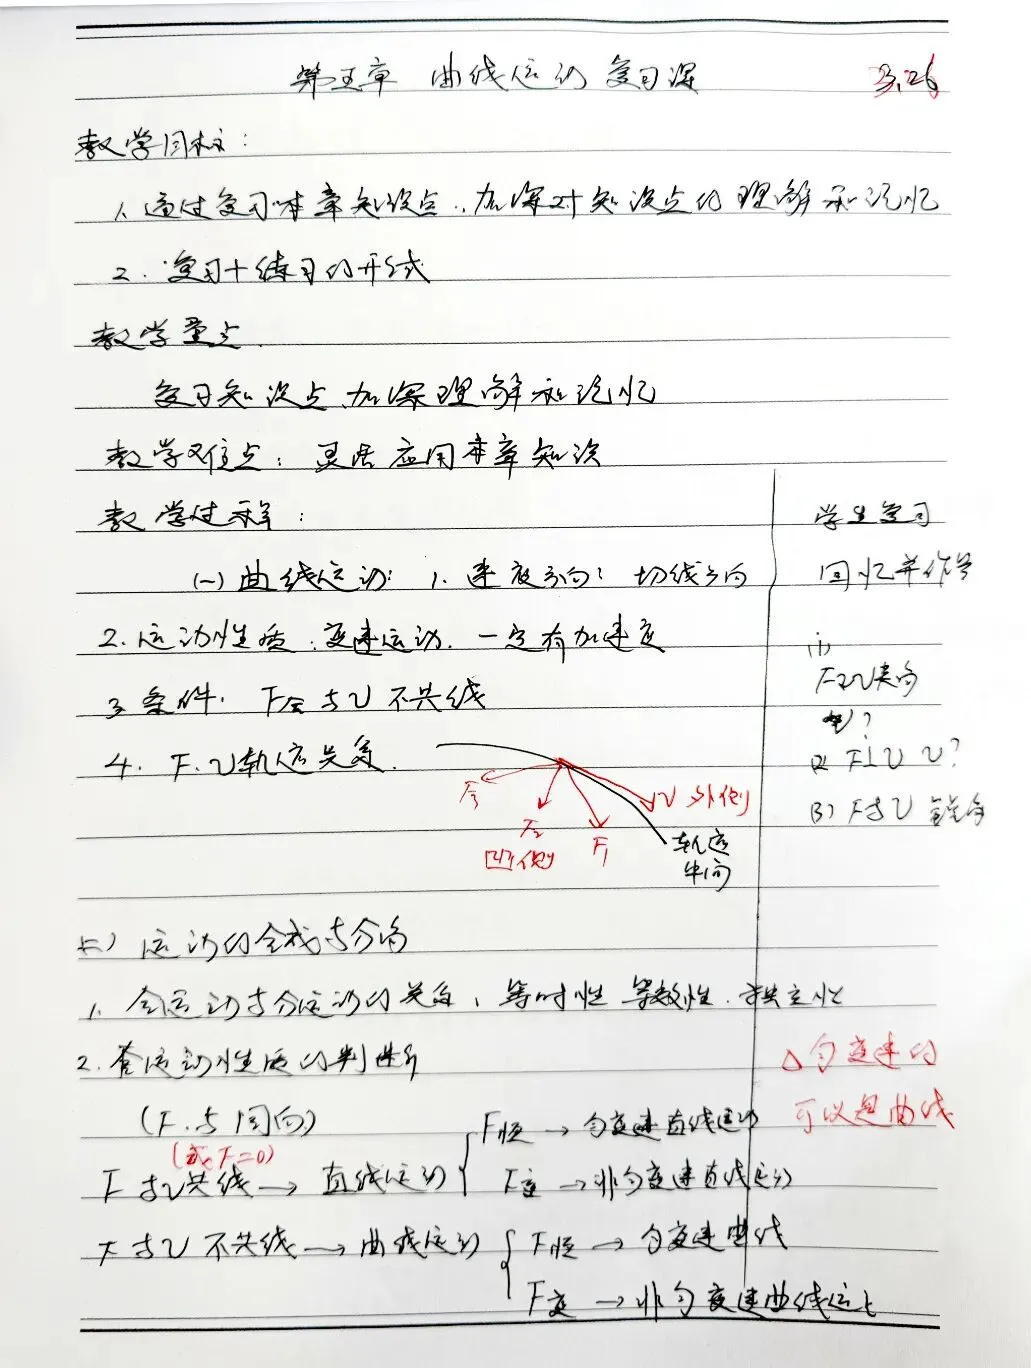 第五章 曲线运动 复习课 3.26
教学目标：
1. 通过复习本章知识点，加深对知识点的理解和记忆
2. 复习+练习的形式
教学重点
复习知识点、加深理解和记忆
教学难点：灵活应用本章知识
教学过程：
(一) 曲线运动：1. 速度方向：切线方向
2. 运动性质：变速运动. 一定有加速度
3 条件. F合与v不共线
4. F、v轨迹关系.
F3
F2
F1
v 外侧
凹侧
轨迹
中间
学生复习
回忆并作答
(1)
F与v夹角
(2) F⊥v v?
(3) F与v 钝角
(二) 运动的合成与分解
1. 合运动与分运动的关系，等时性 等效性. 独立性
2. 合运动性质的判断
△匀变速的
可以是曲线
(F.与 同向)
(或F=0)
F与v共线→直线运动
F恒→匀变速直线运动
F变→非匀变速直线运动
F与v不共线→曲线运动
F恒→匀变速曲线
F变→非匀变速曲线运动